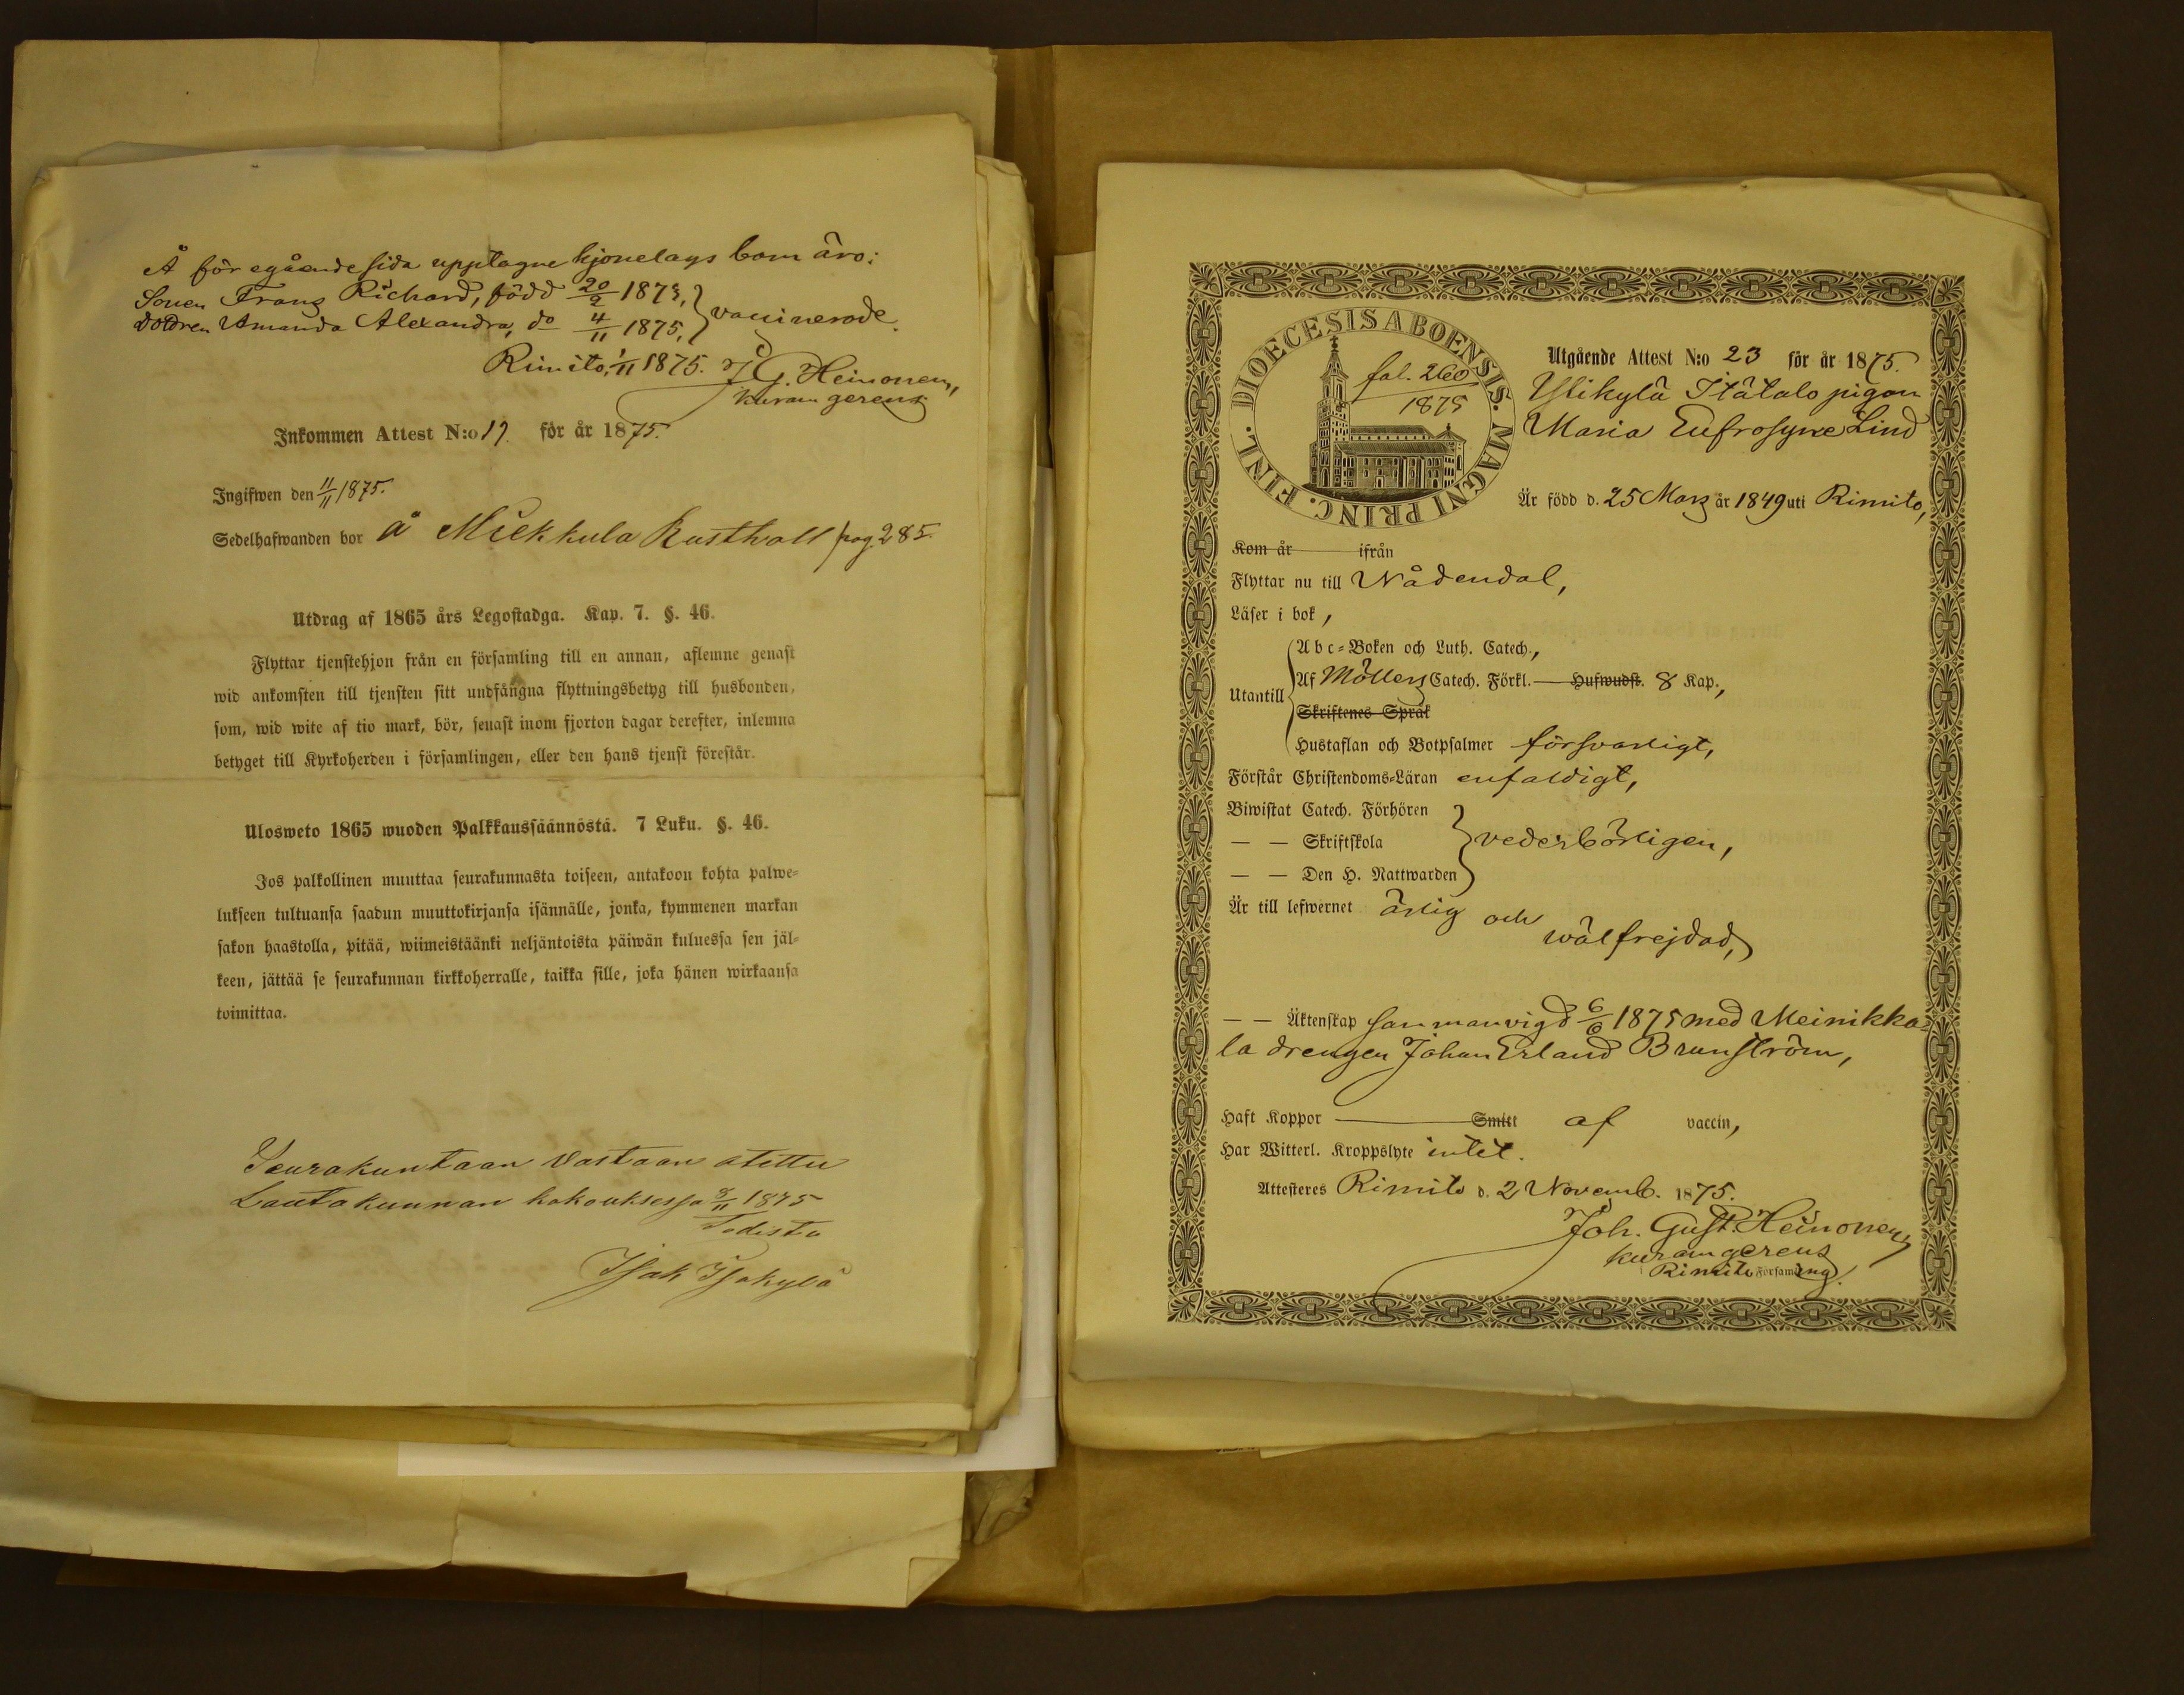 Å föregående sida upptagne hjonelags barn äro:
Sonen Frans Richard, född 20/2 1873, } vaccinerade.
dottren Amanda Alexandra, do 4/11 1875,
Rimito, 1/11 1875. J. G. Heinonen,
kuram gerens
Inkommen Attest N:o 19. för år 1875.
Ingifwen den 11/11 1875.
Sedelhafwanden bor å Miekkula Rusthåll pag. 285.
Utdrag af 1865 års Legostadga. Kap. 7. §. 46.
Flyttar tjenstehjon från en församling till en annan, aflemne genast
wid ankomsten till tjensten sitt undfångna flyttningsbetyg till husbonden,
som, wid wite af tio mark, bör, senast inom fjorton dagar derefter, inlemna
betyget till Kyrkoherden i församlingen, eller den hans tjenst förestår.
Ulosweto 1865 wuoden Palkkaussäännöstä. 7 Luku. §. 46.
Jos palkollinen muuttaa seurakunnasta toiseen, antakoon kohta palwe-
lukseen tultuansa saadun muuttokirjansa isännälle, jonka, kymmenen markan
sakon haastolla, pitää, wiimeistäänki neljäntoista päiwän kuluessa sen jäl-
keen, jättää se seurakunnan kirkkoherralle, taikka sille, joka hänen wirkaansa
toimittaa.
Seurakuntaan Vastaan otettu
Lautakunnan kokouksessa 8/11 1875
Todista
Isak Isokylä
DIOECESIS ABOENSIS. MAGNI PRINC. FINL.
fol. 260
1875
Utgående Attest N:o 23 för år 1875.
Ylikylä Itätalo pigan
Maria Eufrosyne Lind
Är född d. 25 Mars år 1849 uti Rimito,
Kom år ifrån
Flyttar nu till Nådendal,
Läser i bok,
Utantill
Abc-Boken och Luth. Catech.,
Af Möllers Catech. Förkl. — Hufwudst. 8 Kap.,
Skriftenes Språk
Hustaflan och Botpsalmer försvarligt,
Förstår Christendoms-Läran enfaldigt,
Biwistat Catech. Förhören
— — Skriftskola } vederbörligen,
— — Den H. Nattwarden
Är till lefwernet ärlig och
wälfrejdad,
— — Äktenskap sammanvigd 6/6 1875 med Meinikka-
la drengen Johan Erland Brunström,
Haft Koppor — Smitt af vaccin,
Har Witterl. Kroppslyte intet.
Attesteres Rimito d. 2 Novemb. 1875.
Joh. Gust. Heinonen,
kuram gerens
Rimito Församling.